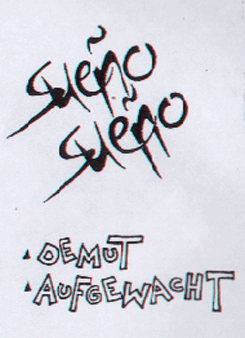 sueño
sueño
DEMUT
AUFGEWACHT